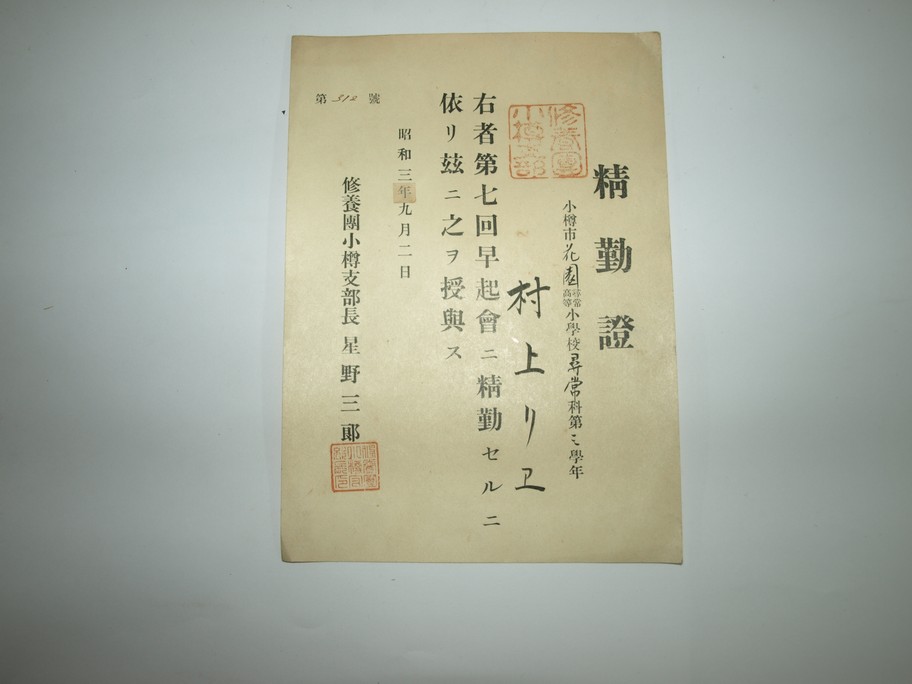 精勤證
小樽市花園尋常高等小學校尋常科第三學年
村上リヱ
修養團小樽支部
右者第七回早起會ニ精勤セルニ
依リ茲ニ之ヲ授與ス
昭和三年九月二日
修養團小樽支部長 星野三郞
第312號